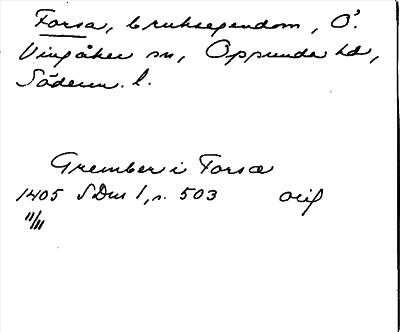 Forsa, bruksegendom, Ö.
Vingåker sn, Oppunda hd,
Söderm. l.
Grember i Forsa
1405 SDns 1, s. 503 orig
11/11